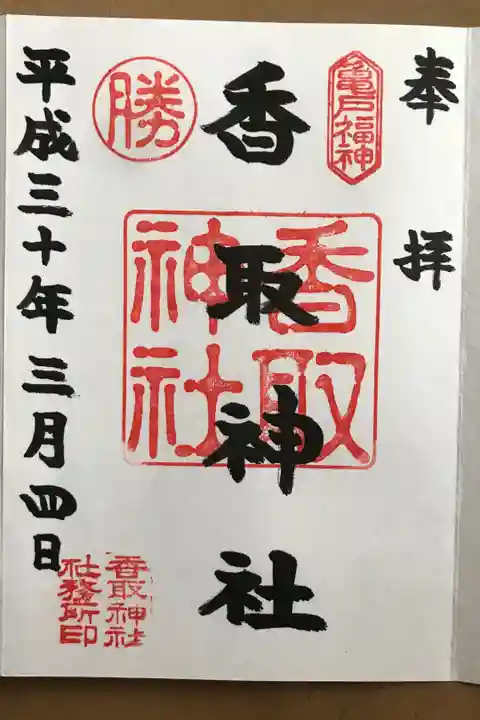 奉拝
亀戸福神
香取神社
香取
神社
勝
平成三十年三月四日
香取神社
社務所印